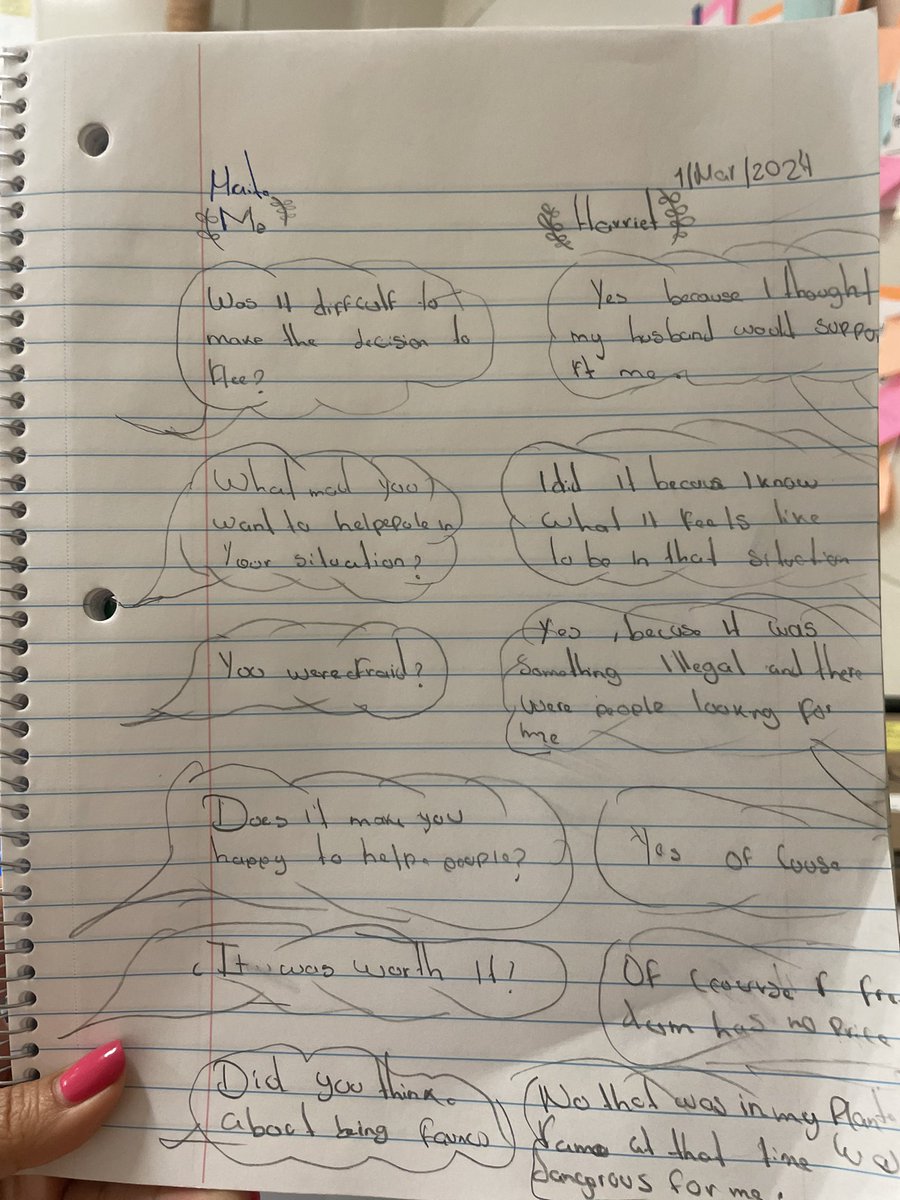 Maite
1/Mar/2024
Me
Harriet
Was it difficult to
make the decision to
flee?
Yes because I thought
my husband would suppo
rt me
What mad you
want to help pepole in
your situation?
I did it becaus I know
what it feels like
to be in that situation
You were afraid?
Yes, becase it was
something illegal and there
were people looking for
me
Does it make you
happy to help people?
Yes of couse
It was worth it?
Of course fre
dom has no price
Did you think
about being
No that was in my
fame at that time wa
dangrous for me.